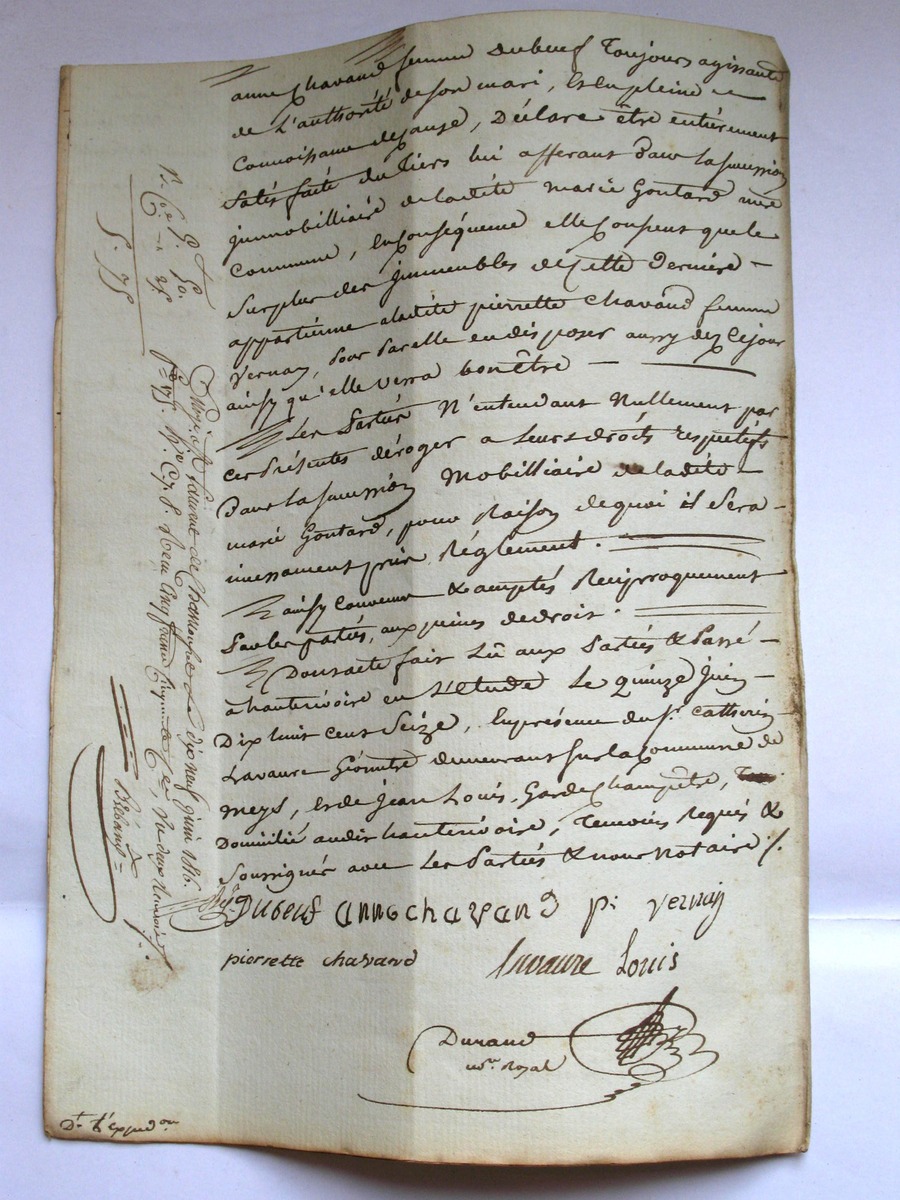 anne Chavand femme Dubeuf Toujours agissante
de L'authorité de son mari, Et en pleine
Connoissance de Cause, Déclare être entièrement
Satisfaite du tiers lui afferant dans la succession
jmmobilliaire de ladite marie Goutard mère
Commune, En Conséquence elle Consent que le
Surplus des jmmeubles de Cette Dernière -
appartienne a ladite pierrette Chavand femme
Vernay, pour Par elle en disposer aussy dez Cejour
ainsy qu'elle verra bon être -
Les Parties N'entendant Nullement par
Ces Présentes déroger a leurs droits respectifs
Dans la succession Mobilliaire de ladite -
marie Goutard, pour Raison de quoi il sera -
incessament pris Réglement.
ainsy Convenu & accepté Réciproquement
Par les parties, aux peines de droit.
Dont acte fait Lû aux Parties & Passé -
a hauterivoire en L'Etude Le quinze Juin -
Dix huit Cent Seize, En présence du sr. Catherin
Lavaure Géomètre demeurant sur la Commune de
Meys, et de Jean Louis, Garde Champêtre,
Domicilié audit hauterivoire, Temoins Requis &
Soussignés avec Les Parties & nous Notaire /.
Dubeuf anne chavand pi vernay
pierrette chavand Lavaure Louis
Durand
nore Royal
Dt. d'expedon
B. Ce. 5. 50.
25
5. 75
Enregt. à St. Laurent de Chamousset le dix neuf juin 1816.